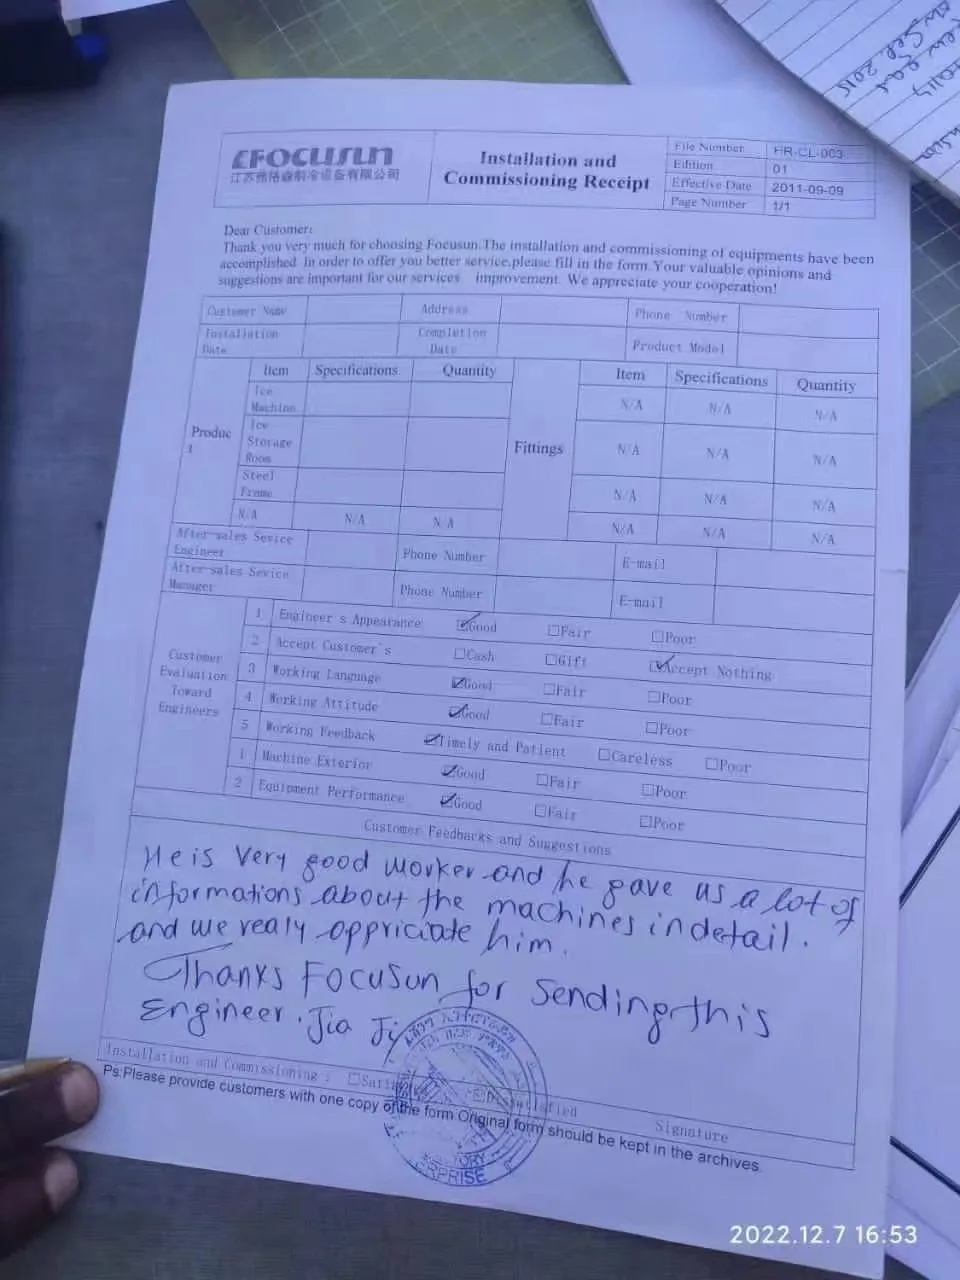 FOCUSUN
江苏佛格森制冷设备有限公司
Installation and
Commissioning Receipt
File Number HR-CL-003
Edition 01
Effective Date 2011-09-09
Page Number 1/1
Dear Customer:
Thank you very much for choosing Focusun.The installation and commissioning of equipments have been
accomplished. In order to offer you better service,please fill in the form.Your valuable opinions and
suggestions are important for our services improvement. We appreciate your cooperation!
Customer Name Address Phone Number
Installation Date Completion Date Product Model
Item Specifications Quantity Item Specifications Quantity
Product Fittings
Ice Machine N/A N/A N/A
Ice Storage Room N/A N/A N/A
Steel Frame N/A N/A N/A
N/A N/A N/A N/A N/A N/A
After-sales Sevice Engineer Phone Number E-mail
After-sales Sevice Manager Phone Number E-mail
Customer Evaluation Toward Engineers
1 Engineer's Appearance ☑Good □Fair □Poor
2 Accept Customer's □Cash □Gift ☑Accept Nothing
3 Working Language ☑Good □Fair □Poor
4 Working Attitude ☑Good □Fair □Poor
5 Working Feedback ☑Timely and Patient □Careless □Poor
1 Machine Exterior ☑Good □Fair □Poor
2 Equipment Performance ☑Good □Fair □Poor
Customer Feedbacks and Suggestions
He is very good worker and he gave us a lot of
informations about the machines in detail.
and we realy appriciate him.
Thanks Focusun for sending this
Engineer. Jia Ji
Installation and Commissioning: Signature
Ps:Please provide customers with one copy of the form Original form should be kept in the archives.
2022.12.7 16:53